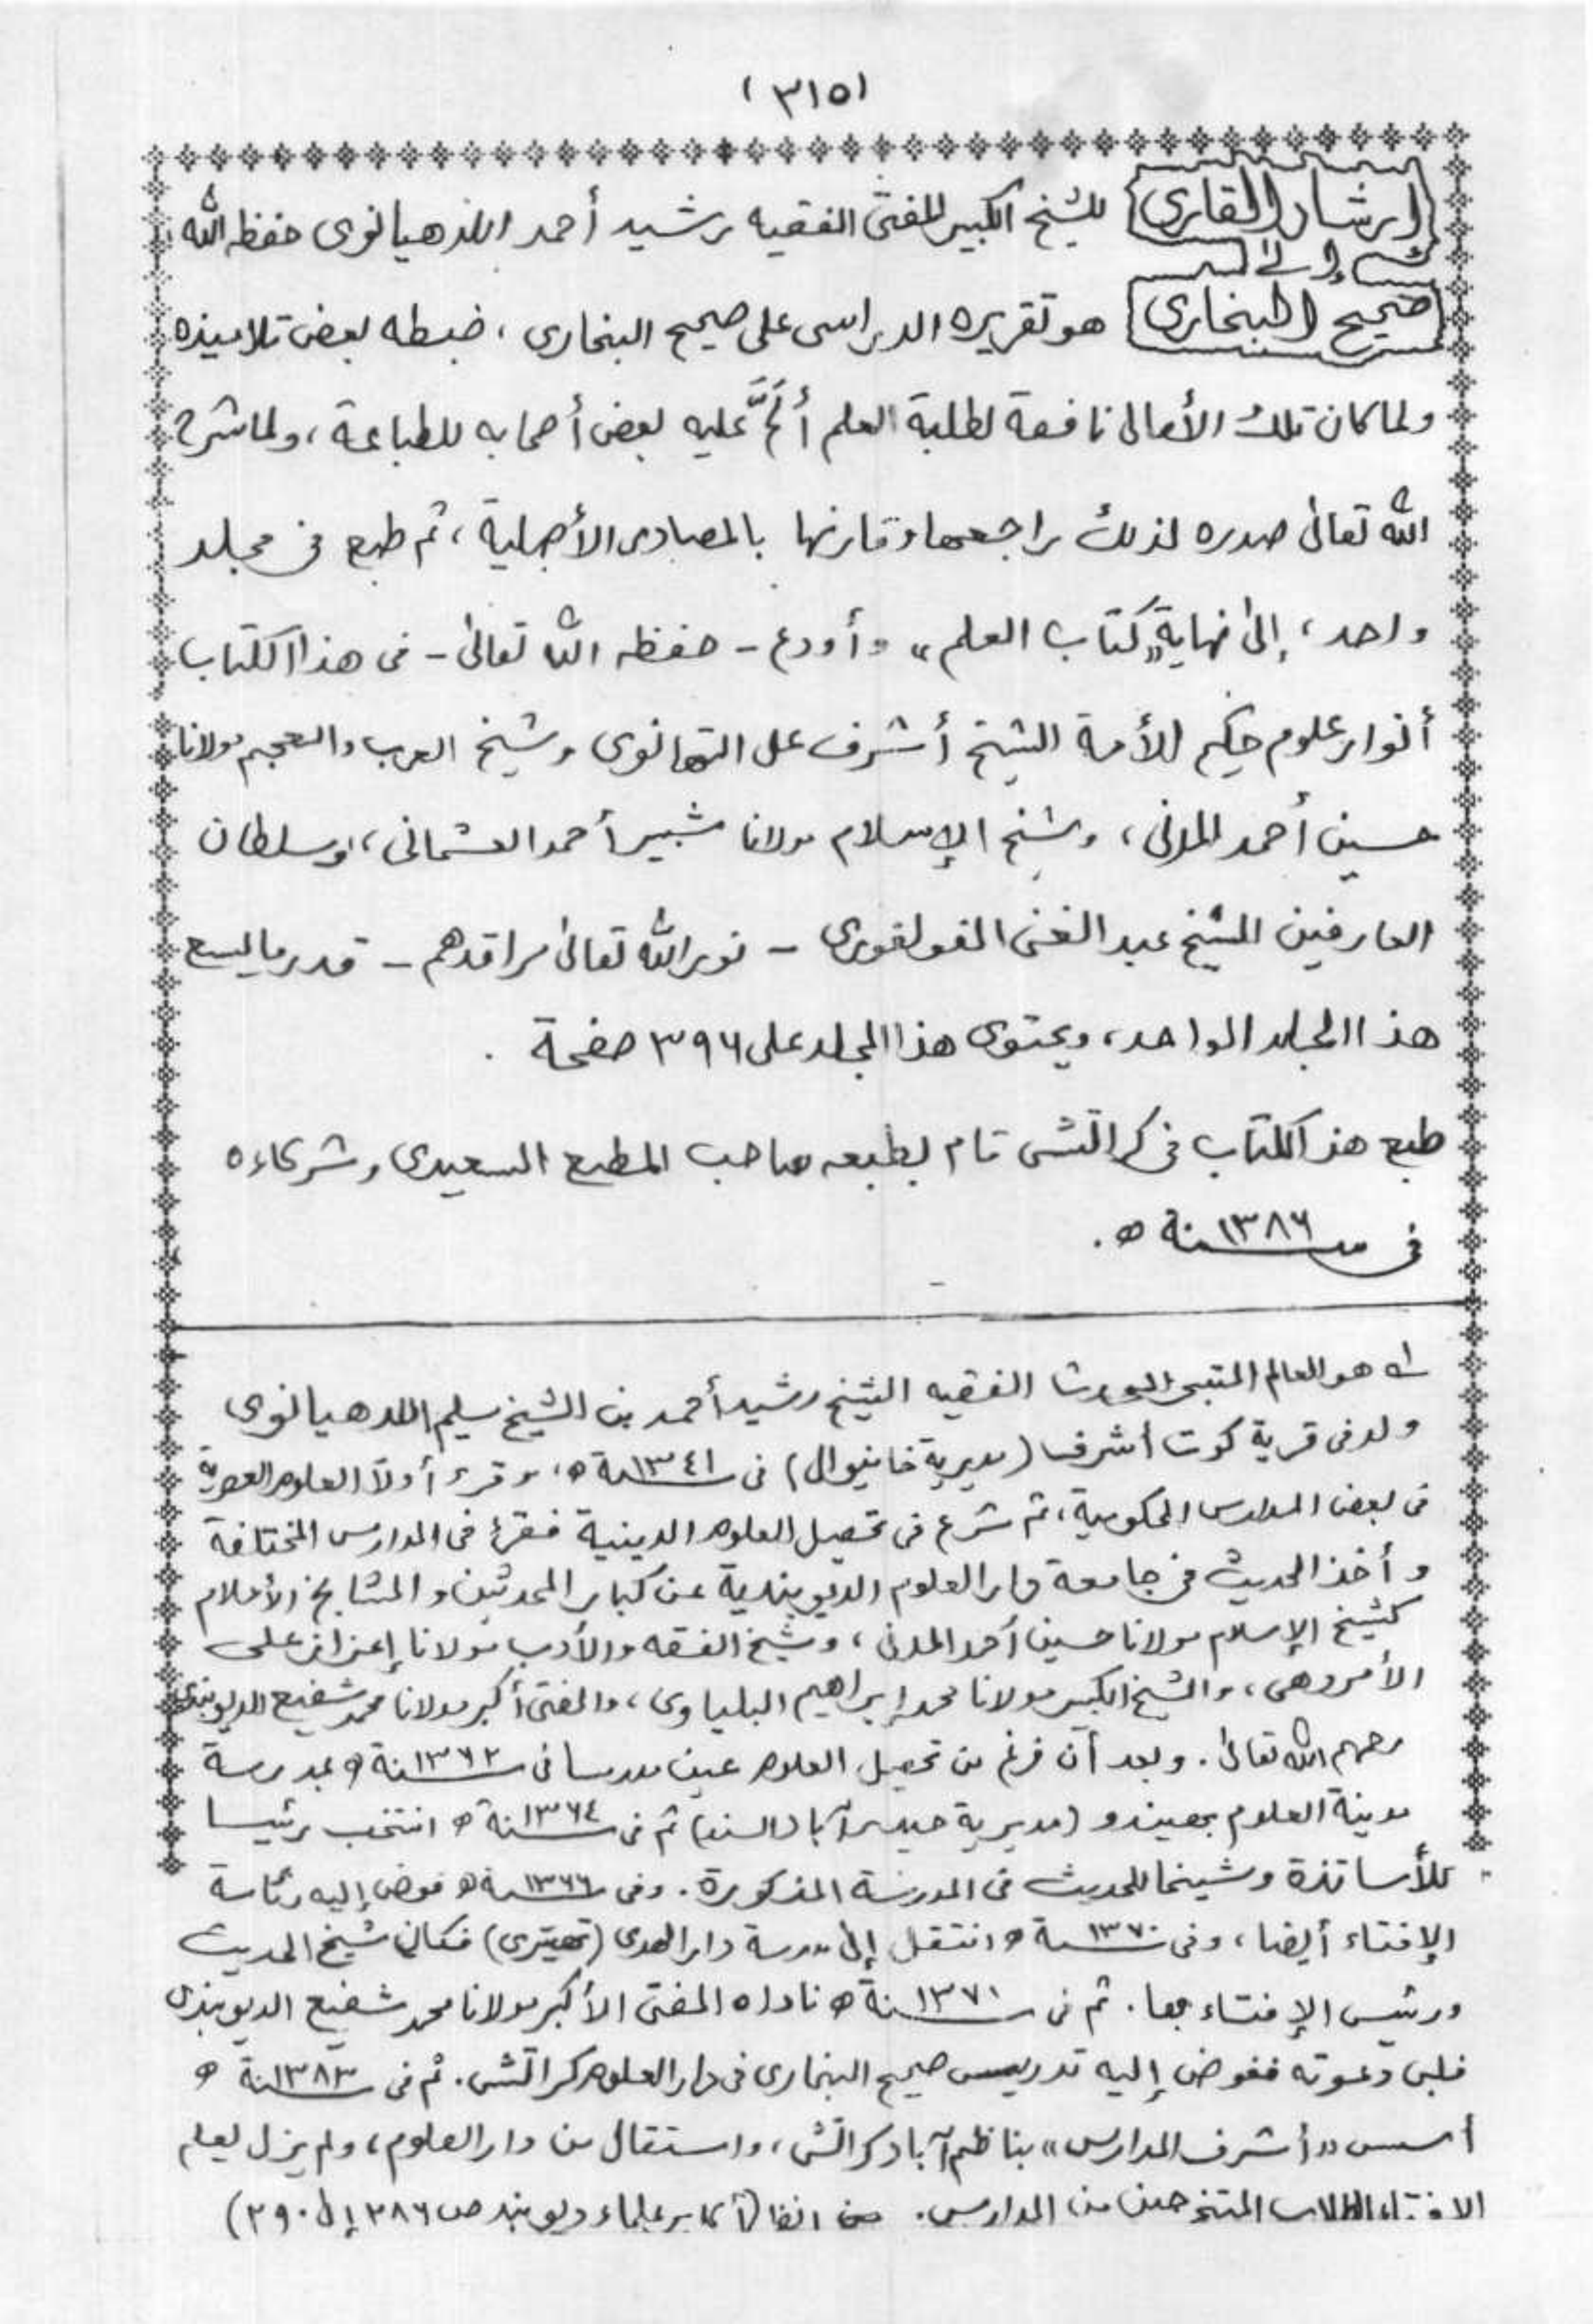 (٣١٥)
إرشاد القارى للشيخ الكبير المفتى الفقيه رشيد أحمد اللدهيانوى حفظه الله
إلى
صحيح البخارى هو تقريره الدراسى على صحيح البخارى، ضبطه بعض تلاميذه
ولما كان تلك الأمالى نافعة لطلبة العلم ألحَّ عليه بعض أصحابه للطباعة، ولما شرح
الله تعالى صدره لذلك راجعها وقارنها بالمصادر الأصلية، ثم طبع فى مجلد
واحد، إلى نهاية "كتاب العلم" وأودع - حفظه الله تعالى - فى هذا الكتاب
أنوار علوم حكيم الأمة الشيخ أشرف على التهانوى وشيخ العرب والعجم مولانا
حسين أحمد المدنى، وشيخ الإسلام مولانا شبير أحمد العثمانى، وسلطان
العارفين الشيخ عبد الغنى الفولفورى - نور الله تعالى مراقدهم - قدر ما يسع
هذا المجلد الواحد، ويحتوى هذا المجلد على ٣٩٦ صفحة .
طبع هذا الكتاب فى كراتشى قام بطبعه صاحب المطبع السعيدى وشركاءه
فى سنة ١٣٨٦ ه .
له هو العالم المتبحر المحدث الفقيه الشيخ رشيد أحمد بن الشيخ سليم اللدهيانوى
ولد فى قرية كوت أشرف (مديرية خانيوال) فى سنة ١٣٤١ ه، وقرء أولاً العلوم العصرية
فى بعض المدارس الحكومية، ثم شرع فى تحصيل العلوم الدينية فقرأ فى المدارس المختلفة
وأخذ الحديث فى جامعة دار العلوم الديوبندية عن كبار المحدثين والمشايخ الأعلام
كشيخ الإسلام مولانا حسين أحمد المدنى، وشيخ الفقه والأدب مولانا إعزاز على
الأمروهى، والشيخ الكبير مولانا محمد إبراهيم البلياوى، والمفتى أكبر مولانا محمد شفيع الديوبندى
رحمهم الله تعالى. وبعد أن فرغ من تحصيل العلوم عين مدرسا فى سنة ١٣٦٢ ه بمدرسة
مدينة العلوم بهيندو (مديرية حيدرآباد السند) ثم فى سنة ١٣٦٤ ه انتخب رئيسا
للأساتذة وشيخا للحديث فى المدرسة المذكورة. وفى سنة ١٣٦٦ ه فوض إليه رئاسة
الإفتاء أيضا، وفى سنة ١٣٧٠ ه انتقل إلى مدرسة دار الهدى (تهيترى) فكان شيخ الحديث
ورئيس الإفتاء بها. ثم فى سنة ١٣٧١ ه ناداه المفتى الأكبر مولانا محمد شفيع الديوبندى
فلبى دعوته ففوض إليه تدريس صحيح البخارى فى دار العلوم كراتشى. ثم فى سنة ١٣٨٣ ه
أسس "أشرف المدارس" بناظم آباد كراتشى، واستقال من دار العلوم، ولم يزل يعلم
الافتاء الطلاب المتخرجين من المدارس. (أكابر علماء ديوبند ص ٢٨٦ إلى ٢٩٠)